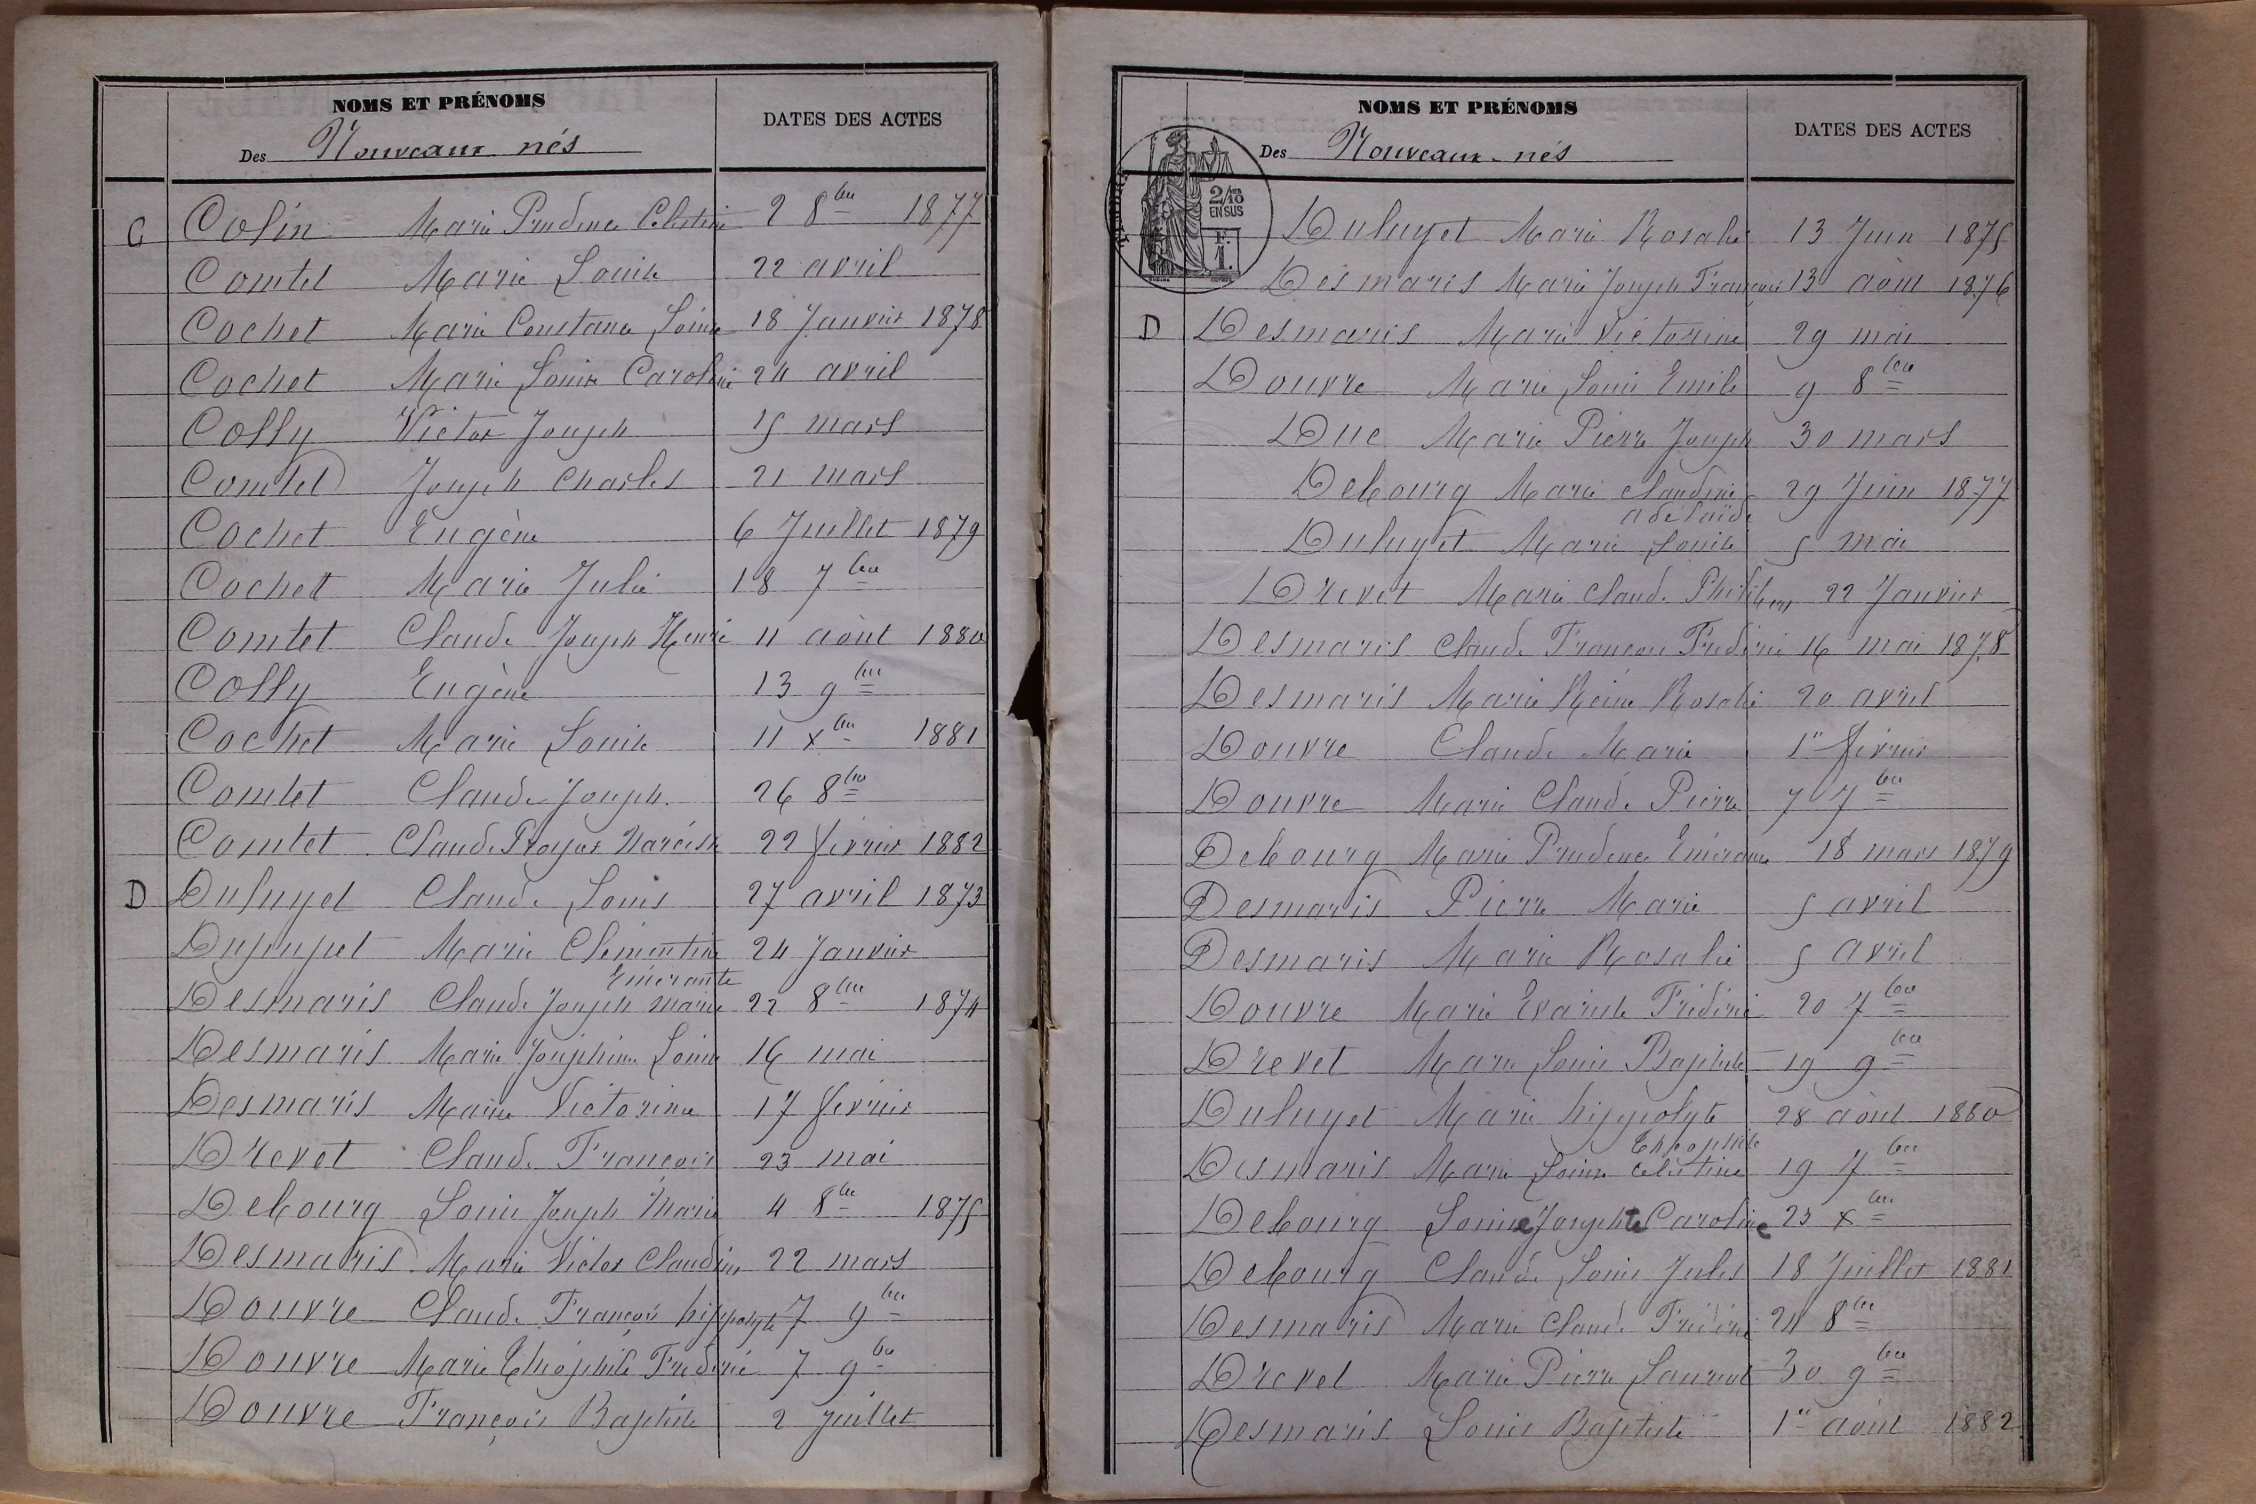 NOMS ET PRÉNOMS
DATES DES ACTES
Des Nouveaux nés
C Colin Marie Prudence Célestine 2 8bre 1877
Comtet Marie Louise 22 avril
Cochet Marie Constance Louise 18 Janvier 1878
Cochet Marie Louise Caroline 24 avril
Colly Victor Joseph 15 mars
Comtet Joseph Charles 21 mars
Cochet Eugène 6 Juillet 1879
Cochet Marie Julie 18 7bre
Comtet Claude Joseph Henri 11 août 1880
Colly Eugène 13 9bre
Cochet Marie Louise 11 xbre 1881
Comtet Claude Joseph 26 8bre
Comtet Claude Narcisse 22 février 1882
D Dufuyet Claude Louis 27 avril 1873
Marie Clémentine 24 Janvier
Emérante
Desmaris Claude Joseph Marie 22 8bre 1874
Desmaris Marie Joséphine Louise 16 mai
Desmaris Marie Victorine 17 février
Drevet Claude François 23 mai
Debourg Louis Joseph Marie 4 8bre 1875
Desmaris Marie Victor Claudius 22 mars
Douvre Claude François hippolyte 7 9bre
Douvre Marie Théophile Frédéric 7 9bre
Douvre François Baptiste 2 Juillet
NOMS ET PRÉNOMS
DATES DES ACTES
Des Nouveaux-nés
2/10
EN SUS
F.
1.
Dufuyet Marie Rosalie 13 Juin 1875
Desmaris Marie Joseph François 13 août 1876
D Desmaris Marie Victorine 29 mai
Douvre Marie Louis Emile 9 8bre
Duc Marie Pierre Joseph 30 mars
Debourg Marie Claudine 29 Juin 1877
adélaïde
Dufuyet Marie Louise 5 mai
Drevet Marie Claude Philibert 22 Janvier
Desmaris Claude François Frédéric 16 mai 1878
Desmaris Marie Reine Rosalie 20 avril
Douvre Claude Marie 1er février
Douvre Marie Claude Pierre 7 7bre
Debourg Marie Prudence 18 mars 1879
Desmaris Pierre Marie 5 avril
Desmaris Marie Rosalie 5 avril
Douvre Marie Evariste Frédéric 20 7bre
Drevet Marie Louis Baptiste 19 9bre
Dufuyet Marie hippolyte 28 août 1880
Théophile
Desmaris Marie Louise Célestine 19 7bre
Debourg Louise Josephte Caroline 23 xbre
Debourg Claude Louis Jules 18 Juillet 1881
Desmaris Marie Claude Frédéric 24 8bre
Drevet Marie Pierre Laurent 30 9bre
Desmaris Louis Baptiste 1er août 1882